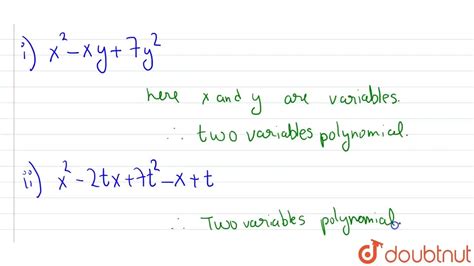 i) x² - xy + 7y²
here x and y are variables.
∴ two variables polynomial.
ii) x² - 2tx + 7t² - x + t
∴ Two variables polynomial.
doubtnut